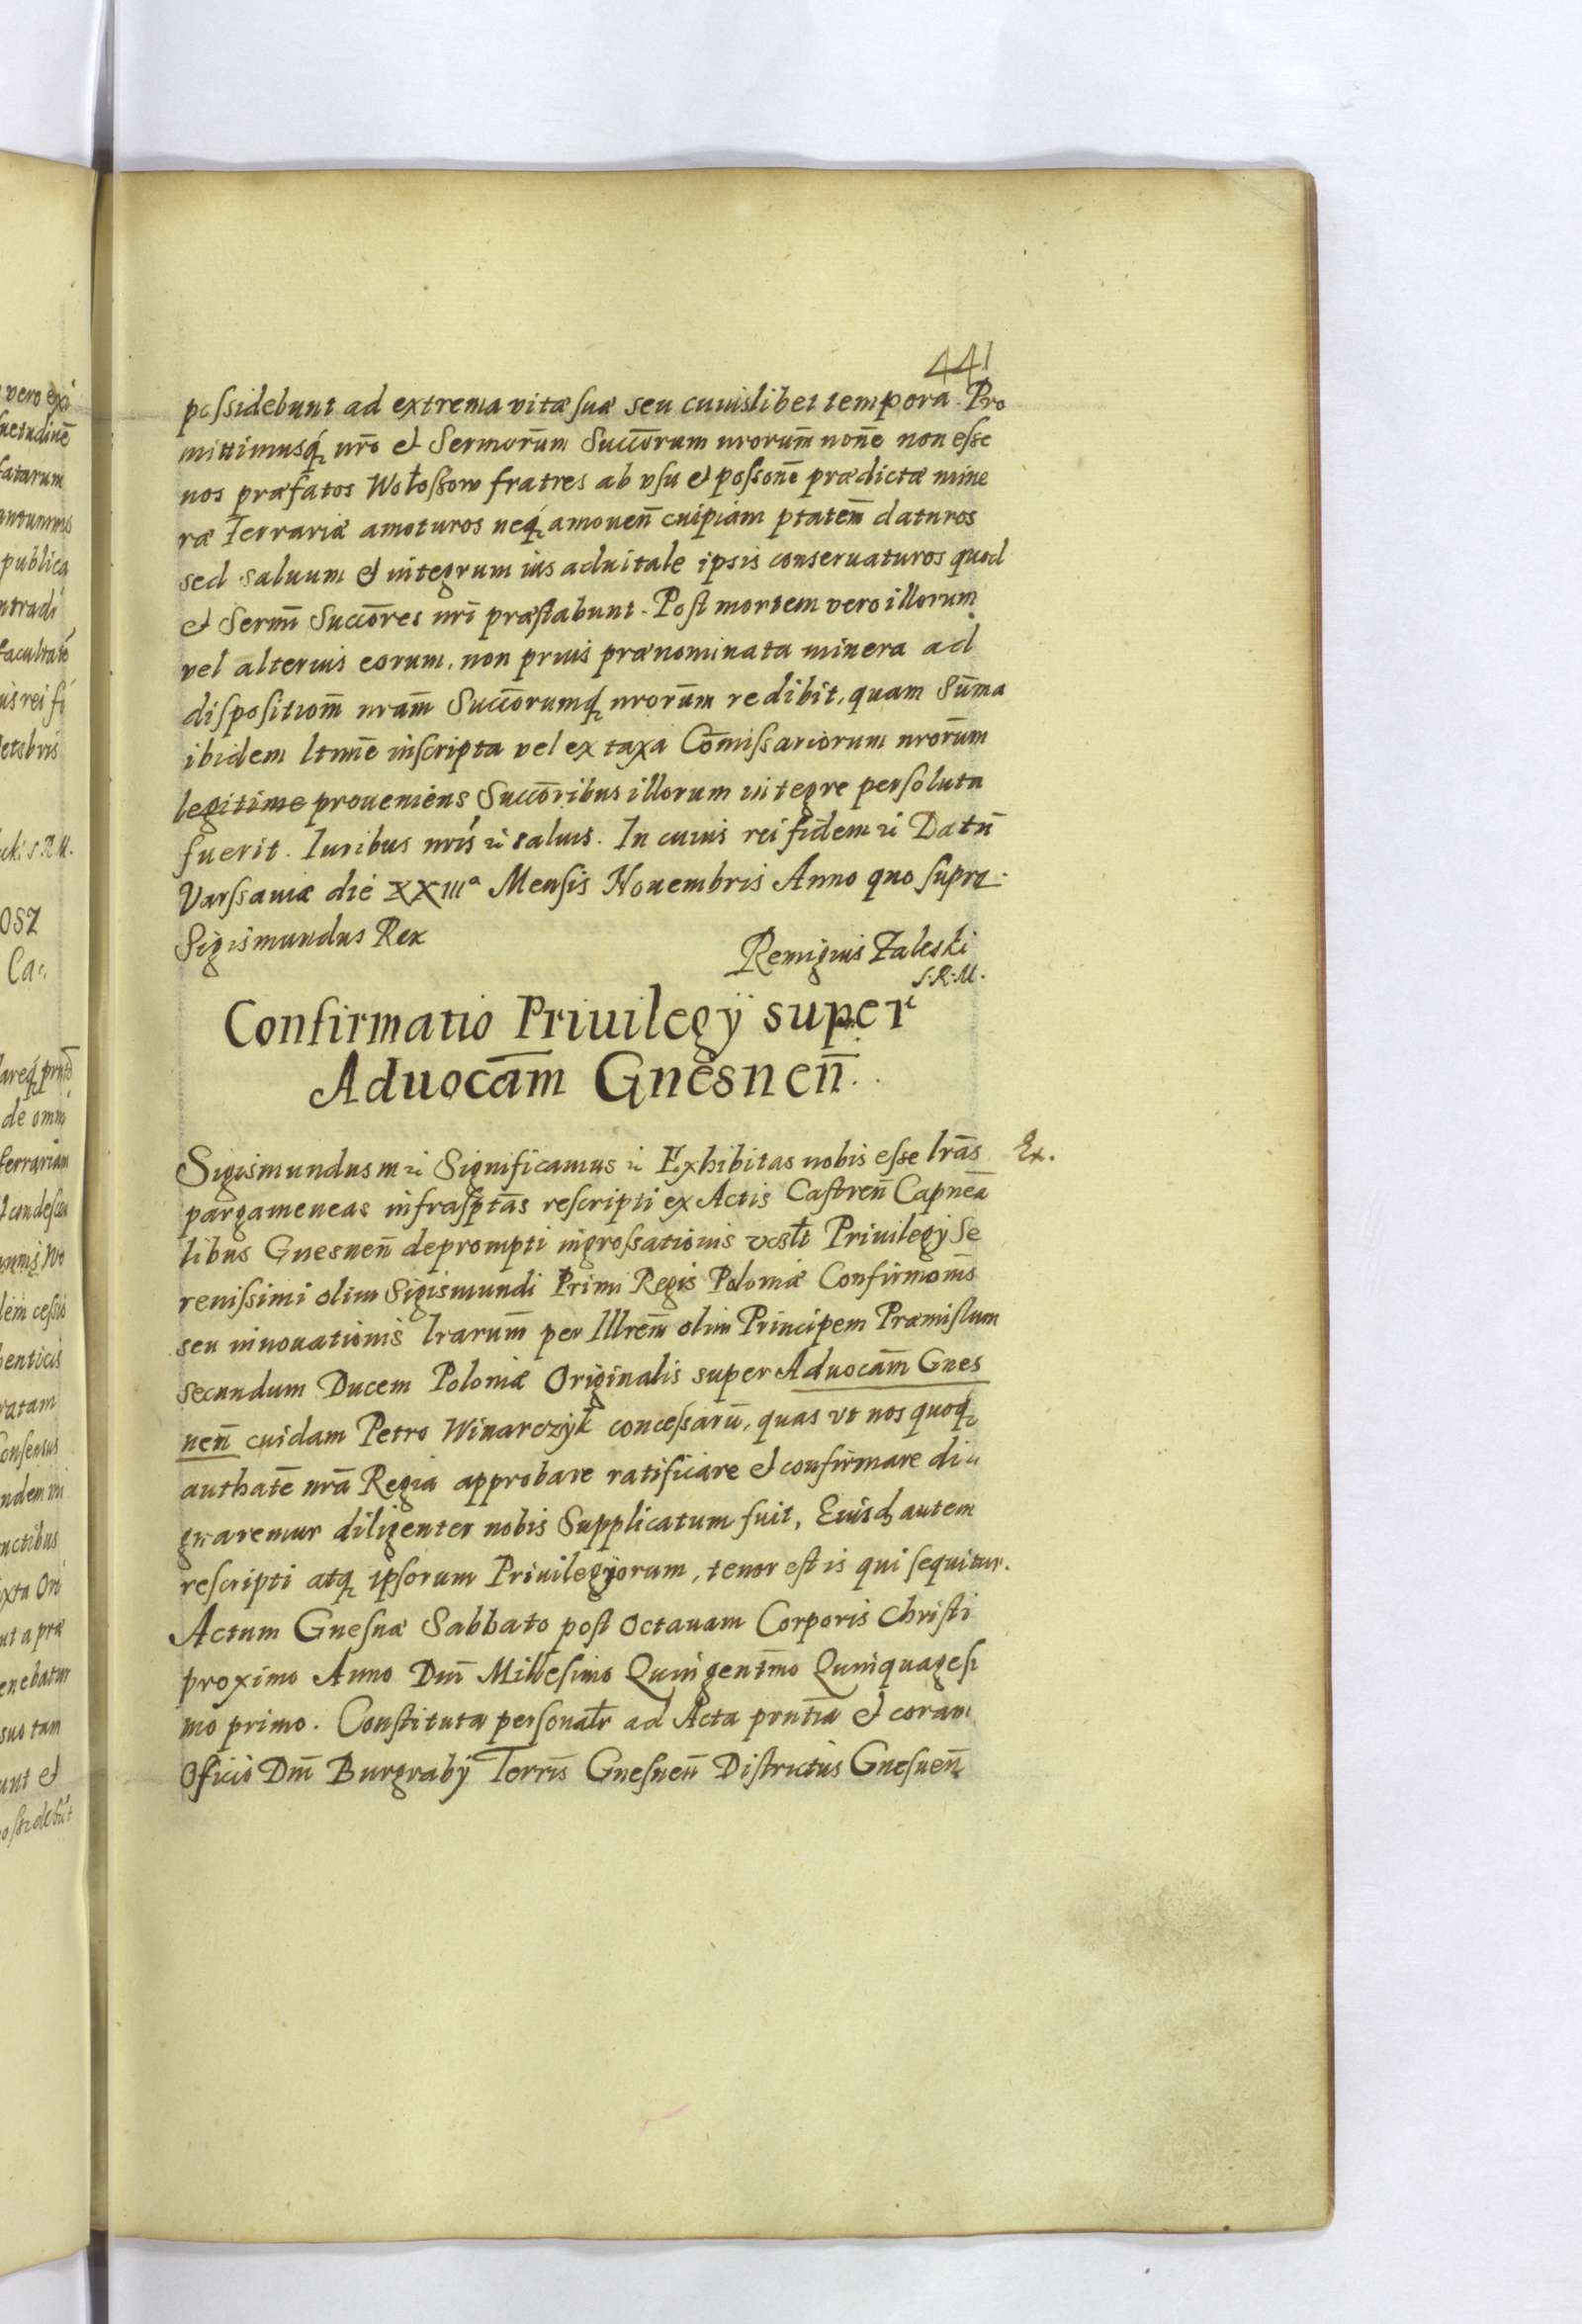 441
possidebunt ad extrema vitæ suæ seu cuiuslibet tempora. Pro
mittimusq́ nr̄o et Sermorūm Succōrum nrorum̄ nōne non esse
nos præfatos Wołossow fratres ab vsu et possonē prædictæ mine
ræ Terrariæ amoturos neq́ amouen̄ cuipiam ptatem̄ daturos
sed saluum et integrum ius aduitale ipsis conseruaturos quod
et Serm̄i Succōres nr̄i præstabunt. Post mortem vero illorum
vel alterius eorum, non prius prænominata minera ad
dispositiom̄ nram̄ Succōrumq nrorūm redibit, quam Sūma
ibidem ltm̄e inscripta vel ex taxa Cōmissariorum nrorūm
legitime proueniens Succōribus illorum integre persoluta
fuerit. Iuribus nrīs etc saluis. In cuius rei fidem etc Datū
Varssauiæ die XXIIIa Mensis Nouembris Anno quo supra.
Sigismundus Rex
Remigius Zaleski
S.R.M.
Confirmatio Priuilegÿ super
Aduocam̄ Gnesnen̄.
Sigismundus m etc Significamus etc Exhibitas nobis esse lrās
Ex.
pargameneas infrasptās rescripti ex Actis Castren̄ Capnea
libus Gnesnen̄ deprompti ingrossationis Priuilegÿ Se
renissimi olim Sigismundi Primi Regis Poloniæ Confirmom̄s
seu innouationis lrarum̄ per Illrem̄ olim Principem Præmislum
secundum Ducem Poloniæ Originalis super Aduocam̄ Gnes
nen̄ cuidam Petro Winarczyk concessarū, quas vt nos quoq
authatē nrā Regia approbare ratificare et confirmare di
gnaremur diligenter nobis Supplicatum fuit, Eiusd autem
rescripti atq ipsorum Priuilegÿorum, tenor est is qui sequitur.
Actum Gnesnæ Sabbato post Octauam Corporis Christi
proximo Anno Dnī Millesimo Quingentm̄o Quinquagesi
mo primo. Constituta personalr̄ ad Acta prntīa et coram
Officio Dnī Burgrabÿ Terrīs Gnesnen̄ Districtus Gnesnen̄